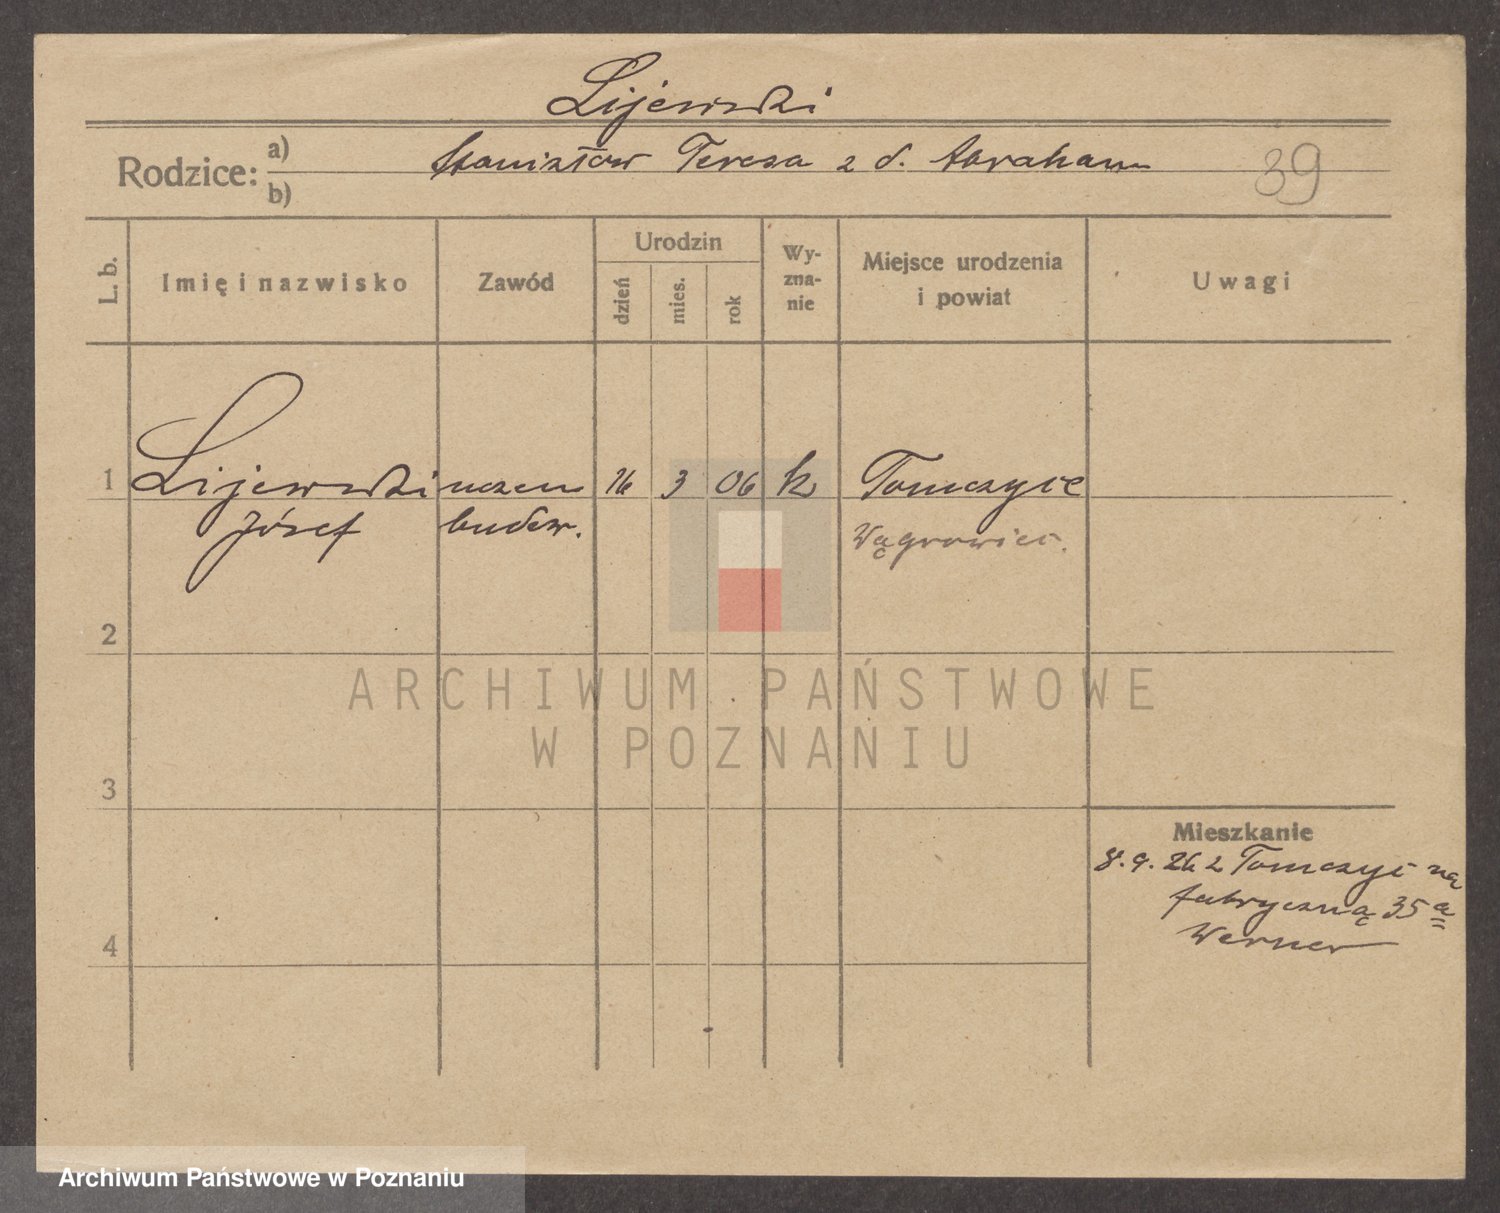 Lijewski
Rodzice: a) Stanisław Teresa z d. Abraham
b)
39
L. b. Imię i nazwisko Zawód Urodzin dzień mies. rok Wy-zna-nie Miejsce urodzenia i powiat Uwagi
1 Lijewski uczeń 16 3 06 k Tomczyce
Józef budow. Wągrowiec.
2
ARCHIWUM PAŃSTWOWE
W POZNANIU
3
Mieszkanie
8.9.26 z Tomczyc na
fabryczną 35 a
Werner
4
Archiwum Państwowe w Poznaniu